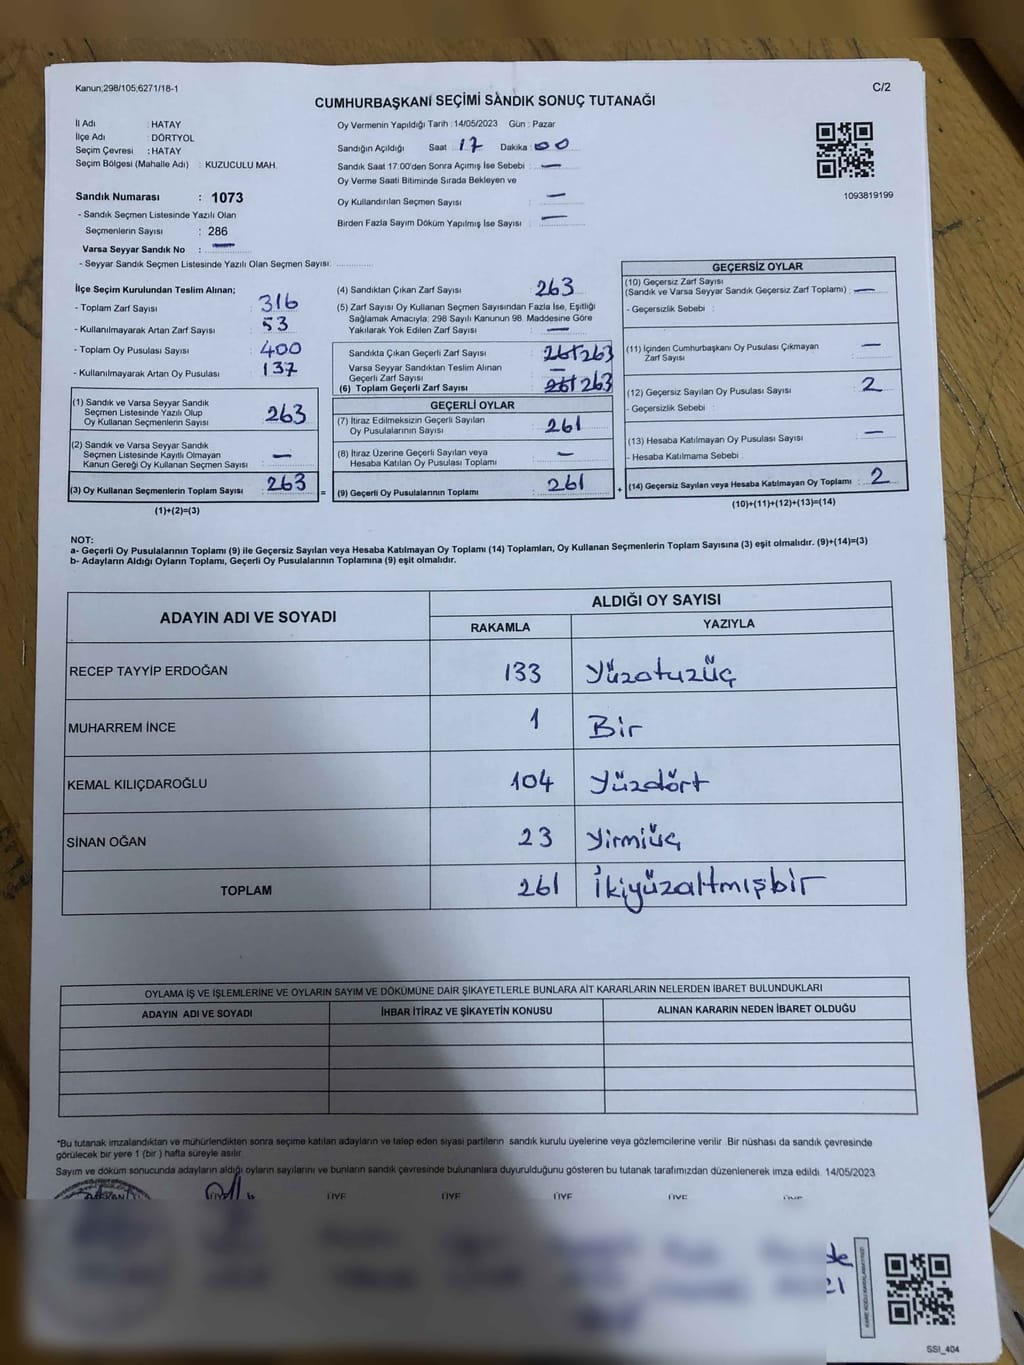 Kanun;298/105;6271/18-1
C/2
CUMHURBAŞKANI SEÇİMİ SANDIK SONUÇ TUTANAĞI
İl Adı : HATAY
İlçe Adı : DÖRTYOL
Seçim Çevresi : HATAY
Seçim Bölgesi (Mahalle Adı) : KUZUCULU MAH.
Sandık Numarası : 1073
- Sandık Seçmen Listesinde Yazılı Olan
Seçmenlerin Sayısı : 286
Varsa Seyyar Sandık No : —
- Seyyar Sandık Seçmen Listesinde Yazılı Olan Seçmen Sayısı: ..............
Oy Vermenin Yapıldığı Tarih : 14/05/2023 Gün : Pazar
Sandığın Açıldığı Saat : 17 Dakika : 00
Sandık Saat 17:00'den Sonra Açımış İse Sebebi : —
Oy Verme Saati Bitiminde Sırada Bekleyen ve
Oy Kullandırılan Seçmen Sayısı : —
Birden Fazla Sayım Döküm Yapılmış İse Sayısı : —
1093819199
İlçe Seçim Kurulundan Teslim Alınan;
- Toplam Zarf Sayısı : 316
- Kullanılmayarak Artan Zarf Sayısı : 53
- Toplam Oy Pusulası Sayısı : 400
- Kullanılmayarak Artan Oy Pusulası : 137
(1) Sandık ve Varsa Seyyar Sandık
Seçmen Listesinde Yazılı Olup
Oy Kullanan Seçmenlerin Sayısı : 263
(2) Sandık ve Varsa Seyyar Sandık
Seçmen Listesinde Kayıtlı Olmayan
Kanun Gereği Oy Kullanan Seçmen Sayısı : —
(3) Oy Kullanan Seçmenlerin Toplam Sayısı : 263
(1)+(2)=(3)
(4) Sandıktan Çıkan Zarf Sayısı : 263
(5) Zarf Sayısı Oy Kullanan Seçmen Sayısından Fazla İse, Eşitliği
Sağlamak Amacıyla; 298 Sayılı Kanunun 98. Maddesine Göre
Yakılarak Yok Edilen Zarf Sayısı : —
Sandıkta Çıkan Geçerli Zarf Sayısı : 261 263
Varsa Seyyar Sandıktan Teslim Alınan
Geçerli Zarf Sayısı : —
(6) Toplam Geçerli Zarf Sayısı : 261 263
GEÇERLİ OYLAR
(7) İtiraz Edilmeksizin Geçerli Sayılan
Oy Pusulalarının Sayısı : 261
(8) İtiraz Üzerine Geçerli Sayılan veya
Hesaba Katılan Oy Pusulası Toplamı : —
= (9) Geçerli Oy Pusulalarının Toplamı : 261
GEÇERSİZ OYLAR
(10) Geçersiz Zarf Sayısı
(Sandık ve Varsa Seyyar Sandık Geçersiz Zarf Toplamı) : —
- Geçersizlik Sebebi :
(11) İçinden Cumhurbaşkanı Oy Pusulası Çıkmayan
Zarf Sayısı : —
(12) Geçersiz Sayılan Oy Pusulası Sayısı : 2
- Geçersizlik Sebebi :
(13) Hesaba Katılmayan Oy Pusulası Sayısı : —
- Hesaba Katılmama Sebebi :
+ (14) Geçersiz Sayılan veya Hesaba Katılmayan Oy Toplamı : 2
(10)+(11)+(12)+(13)=(14)
NOT:
a- Geçerli Oy Pusulalarının Toplamı (9) ile Geçersiz Sayılan veya Hesaba Katılmayan Oy Toplamı (14) Toplamları, Oy Kullanan Seçmenlerin Toplam Sayısına (3) eşit olmalıdır. (9)+(14)=(3)
b- Adayların Aldığı Oyların Toplamı, Geçerli Oy Pusulalarının Toplamına (9) eşit olmalıdır.
ADAYIN ADI VE SOYADI ALDIĞI OY SAYISI
RAKAMLA YAZIYLA
RECEP TAYYİP ERDOĞAN 133 Yüzotuzüç
MUHARREM İNCE 1 Bir
KEMAL KILIÇDAROĞLU 104 Yüzdört
SİNAN OĞAN 23 Yirmiüç
TOPLAM 261 İkiyüzaltmışbir
OYLAMA İŞ VE İŞLEMLERİNE VE OYLARIN SAYIM VE DÖKÜMÜNE DAİR ŞİKAYETLERLE BUNLARA AİT KARARLARIN NELERDEN İBARET BULUNDUKLARI
ADAYIN ADI VE SOYADI İHBAR İTİRAZ VE ŞİKAYETİN KONUSU ALINAN KARARIN NEDEN İBARET OLDUĞU
*Bu tutanak imzalandıktan ve mühürlendikten sonra seçime katılan adayların ve talep eden siyasi partilerin sandık kurulu üyelerine veya gözlemcilerine verilir. Bir nüshası da sandık çevresinde
görülecek bir yere 1 (bir ) hafta süreyle asılır.
Sayım ve döküm sonucunda adayların aldığı oyların sayılarını ve bunların sandık çevresinde bulunanlara duyurulduğunu gösteren bu tutanak tarafımızdan düzenlenerek imza edildi. 14/05/2023
BAŞKAN ÜYE ÜYE ÜYE ÜYE ÜYE ÜYE
SSI_404